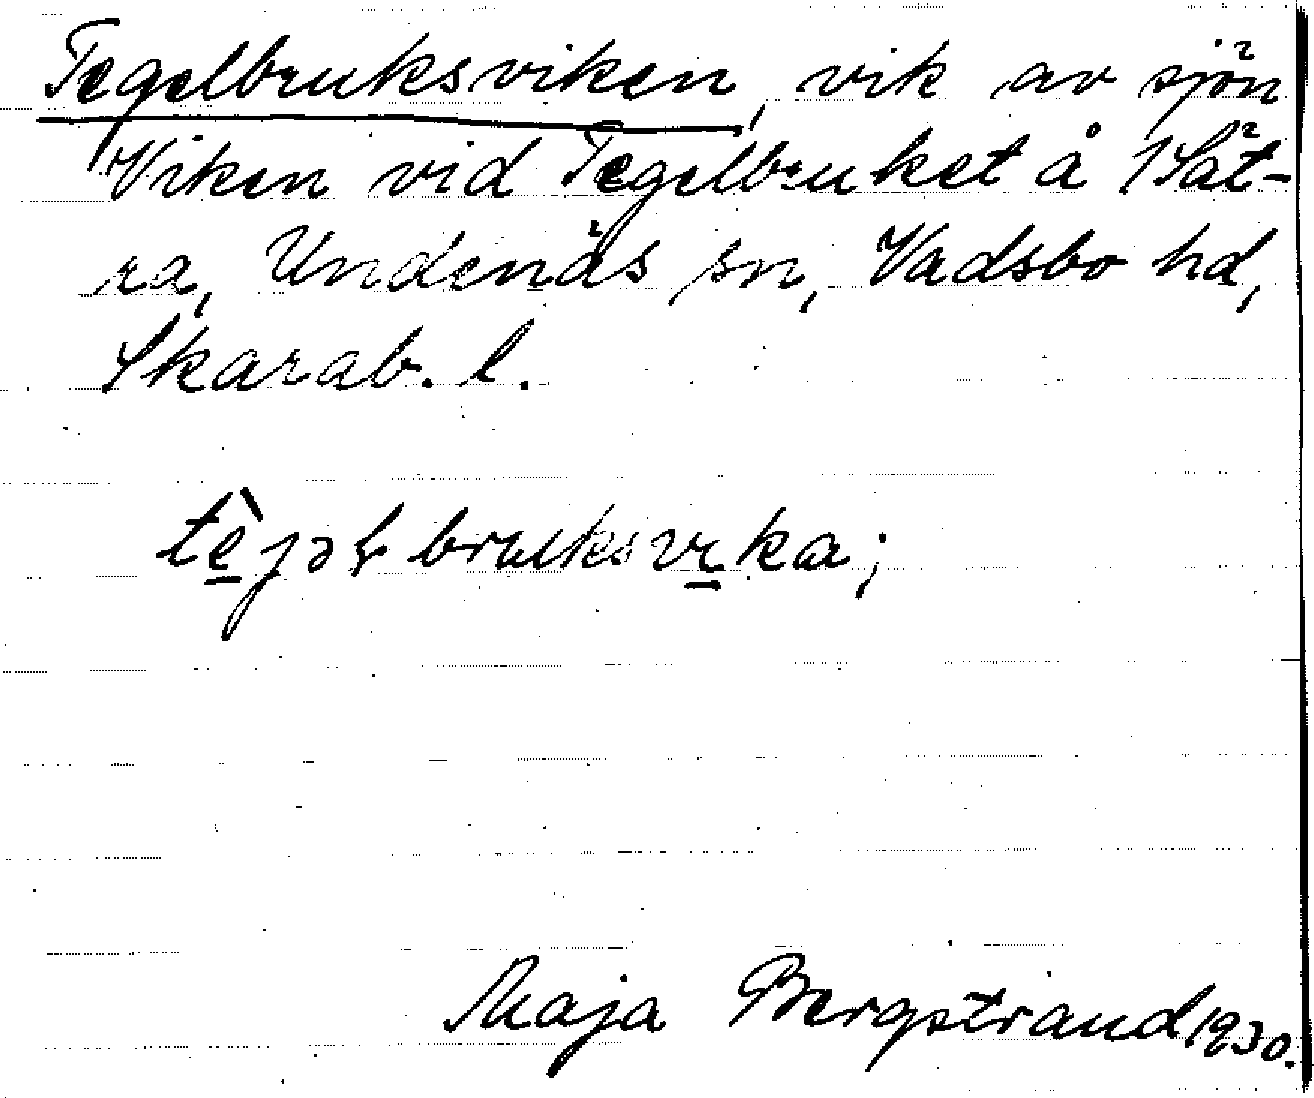 Tegelbruksviken, vik av sjön
Viken vid Tegelbruket å 1 Sät-
ra, Undenäs sn, Vadsbo hd,
Skarab. l.
tè̠jəɫbruksvi̠ka;
Maja Bergstrand 1930.